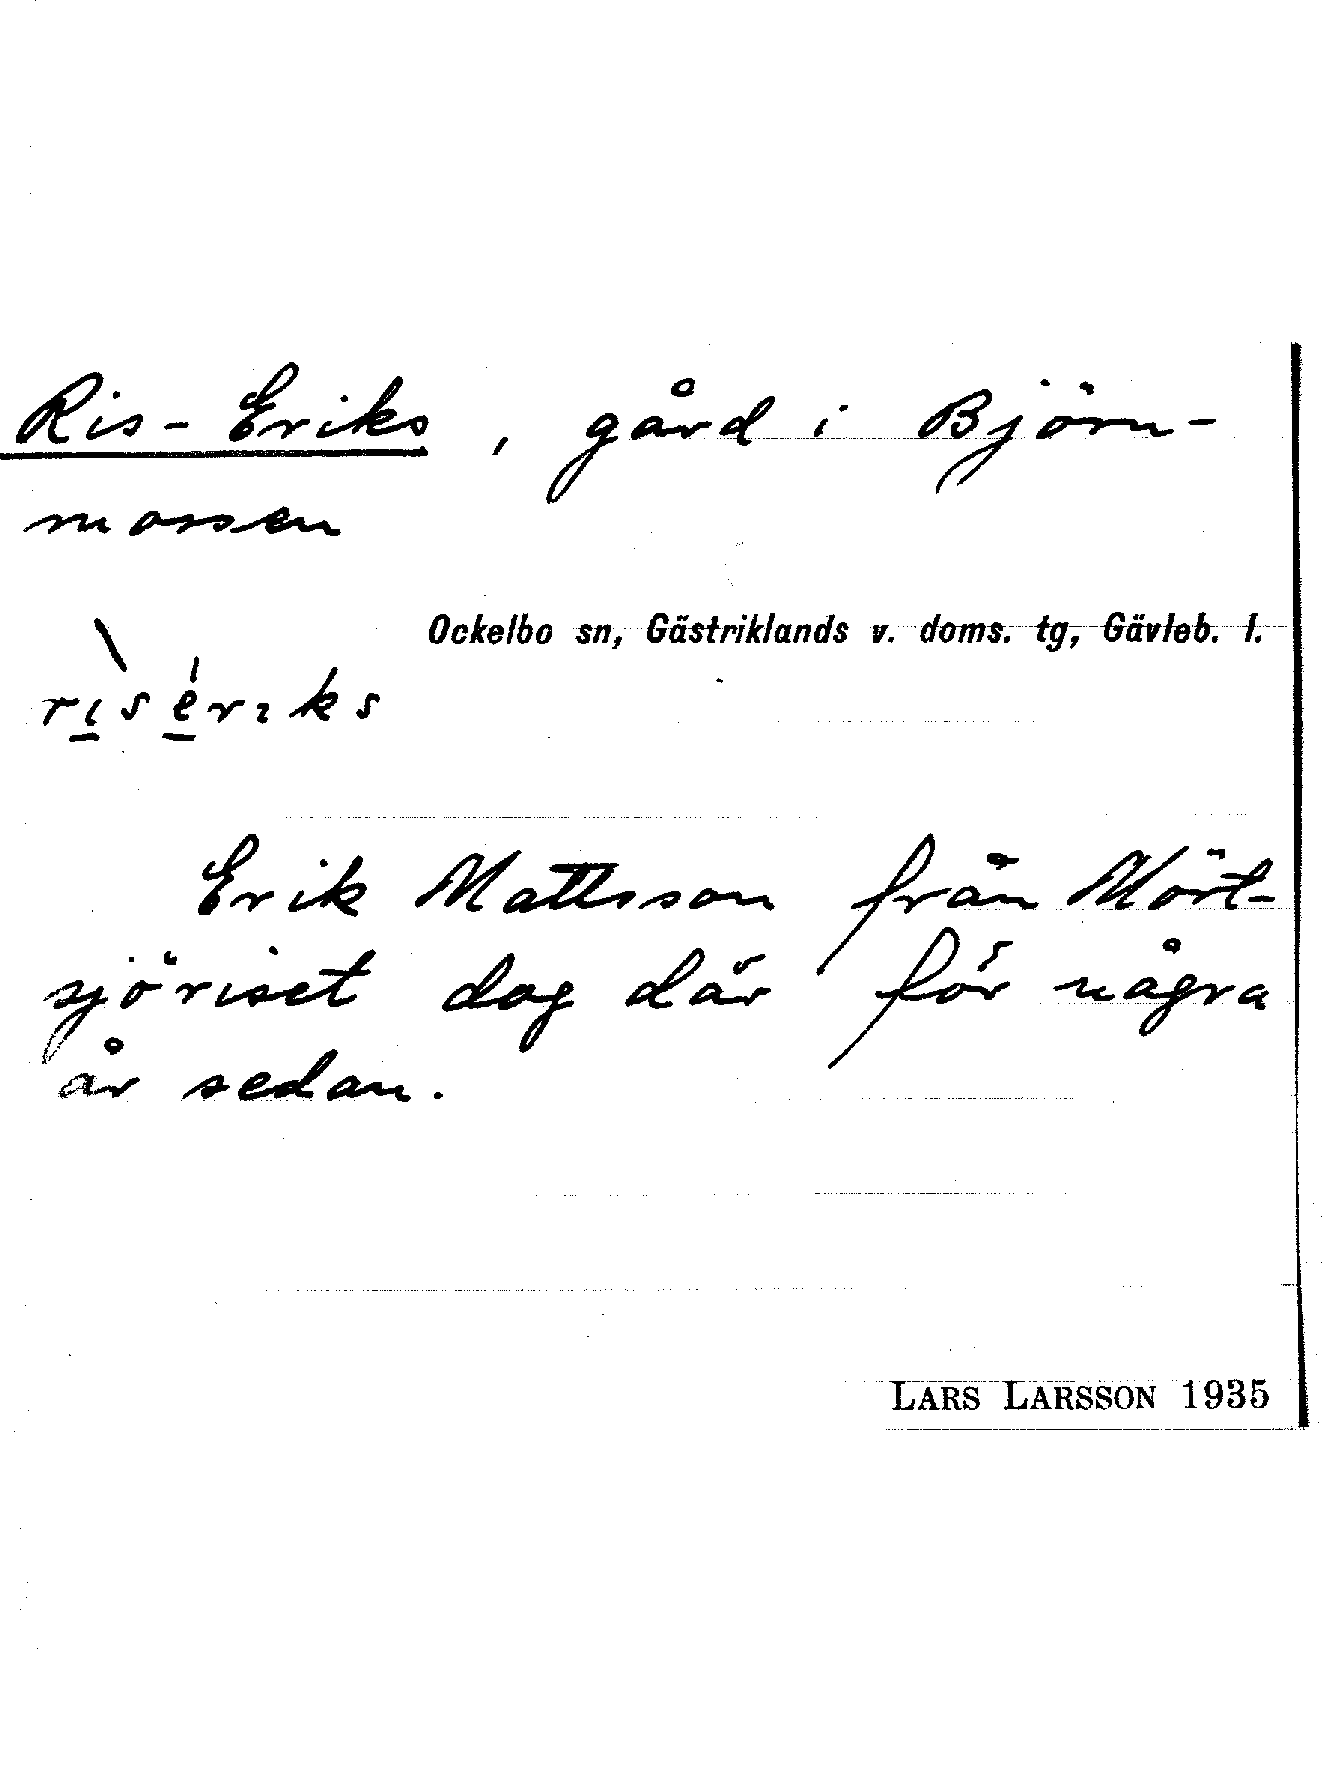 Ris-Eriks, gård i Björn-
mossen
Ockelbo sn, Gästriklands v. doms. tg, Gävleb. l.
rìsériks
Erik Mattsson från Mört-
sjöriset dog där för några
år sedan.
LARS LARSSON 1935